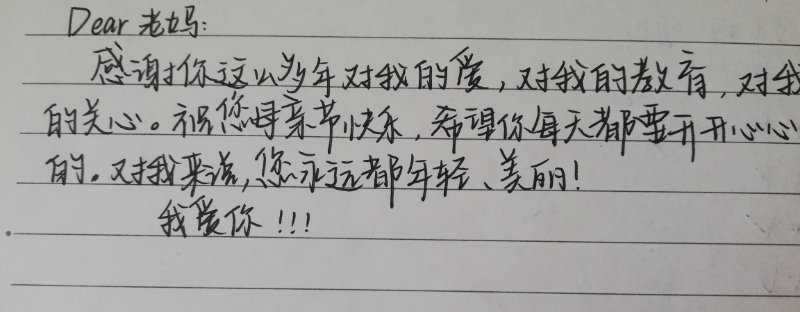 Dear 老妈:
感谢你这么多年对我的爱,对我的教育,对我
的关心。祝您母亲节快乐,希望你每天都要开开心心
的。对我来说,您永远都年轻、美丽!
我爱你!!!